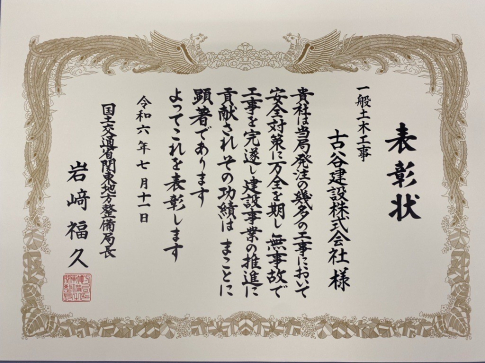 表彰状
一般土木工事
古谷建設株式会社 様
貴社は当局発注の幾多の工事において
安全対策に万全を期し無事故で
工事を完遂し建設事業の推進に
貢献され その功績は まことに
顕著であります
よってこれを表彰します
令和六年七月十一日
国土交通省関東地方整備局長
岩﨑福久